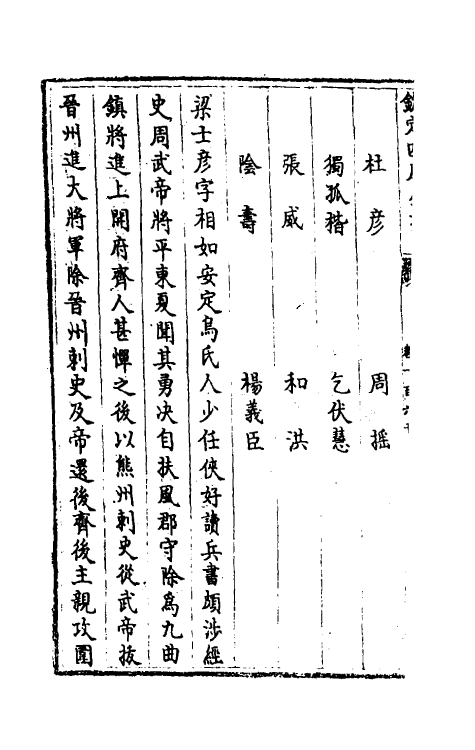 欽定四庫全書
杜彦 周摇
獨孤楷 乞伏慧
張威 和洪
陰壽 楊義臣
梁士彦字相如安定烏氏人少任俠好讀兵書頗涉經
史周武帝將平東夏聞其勇决自扶風郡守除為九曲
鎮將進上開府齊人甚憚之後以熊州刺史從武帝拔
晉州進大將軍除晉州刺史及帝還後齊後主親攻圍